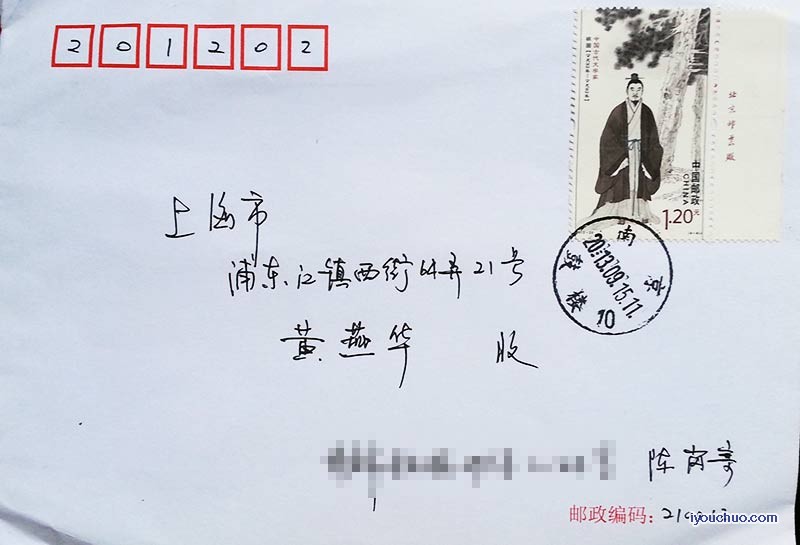 201202
中国古代文学家
中国邮政
CHINA
1.20元
南京
2013.09.15.11
鼓楼
10
上海市
浦东江镇西街64弄21号
黄燕华 收
邮政编码：
iyouchuo.com